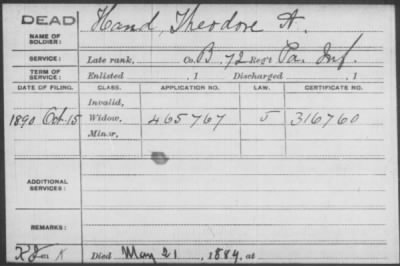 DEAD
Hand, Theodore A.
NAME OF SOLDIER:
SERVICE: Late rank, Co. B, 72 Reg't Pa. Inf.
TERM OF SERVICE: Enlisted , 1 Discharged , 1
DATE OF FILING. CLASS. APPLICATION NO. LAW. CERTIFICATE NO.
Invalid,
1890 Oct. 15 Widow, 465767 5 316760
Minor,
ADDITIONAL SERVICES:
REMARKS:
K Died May 21, 1884, at